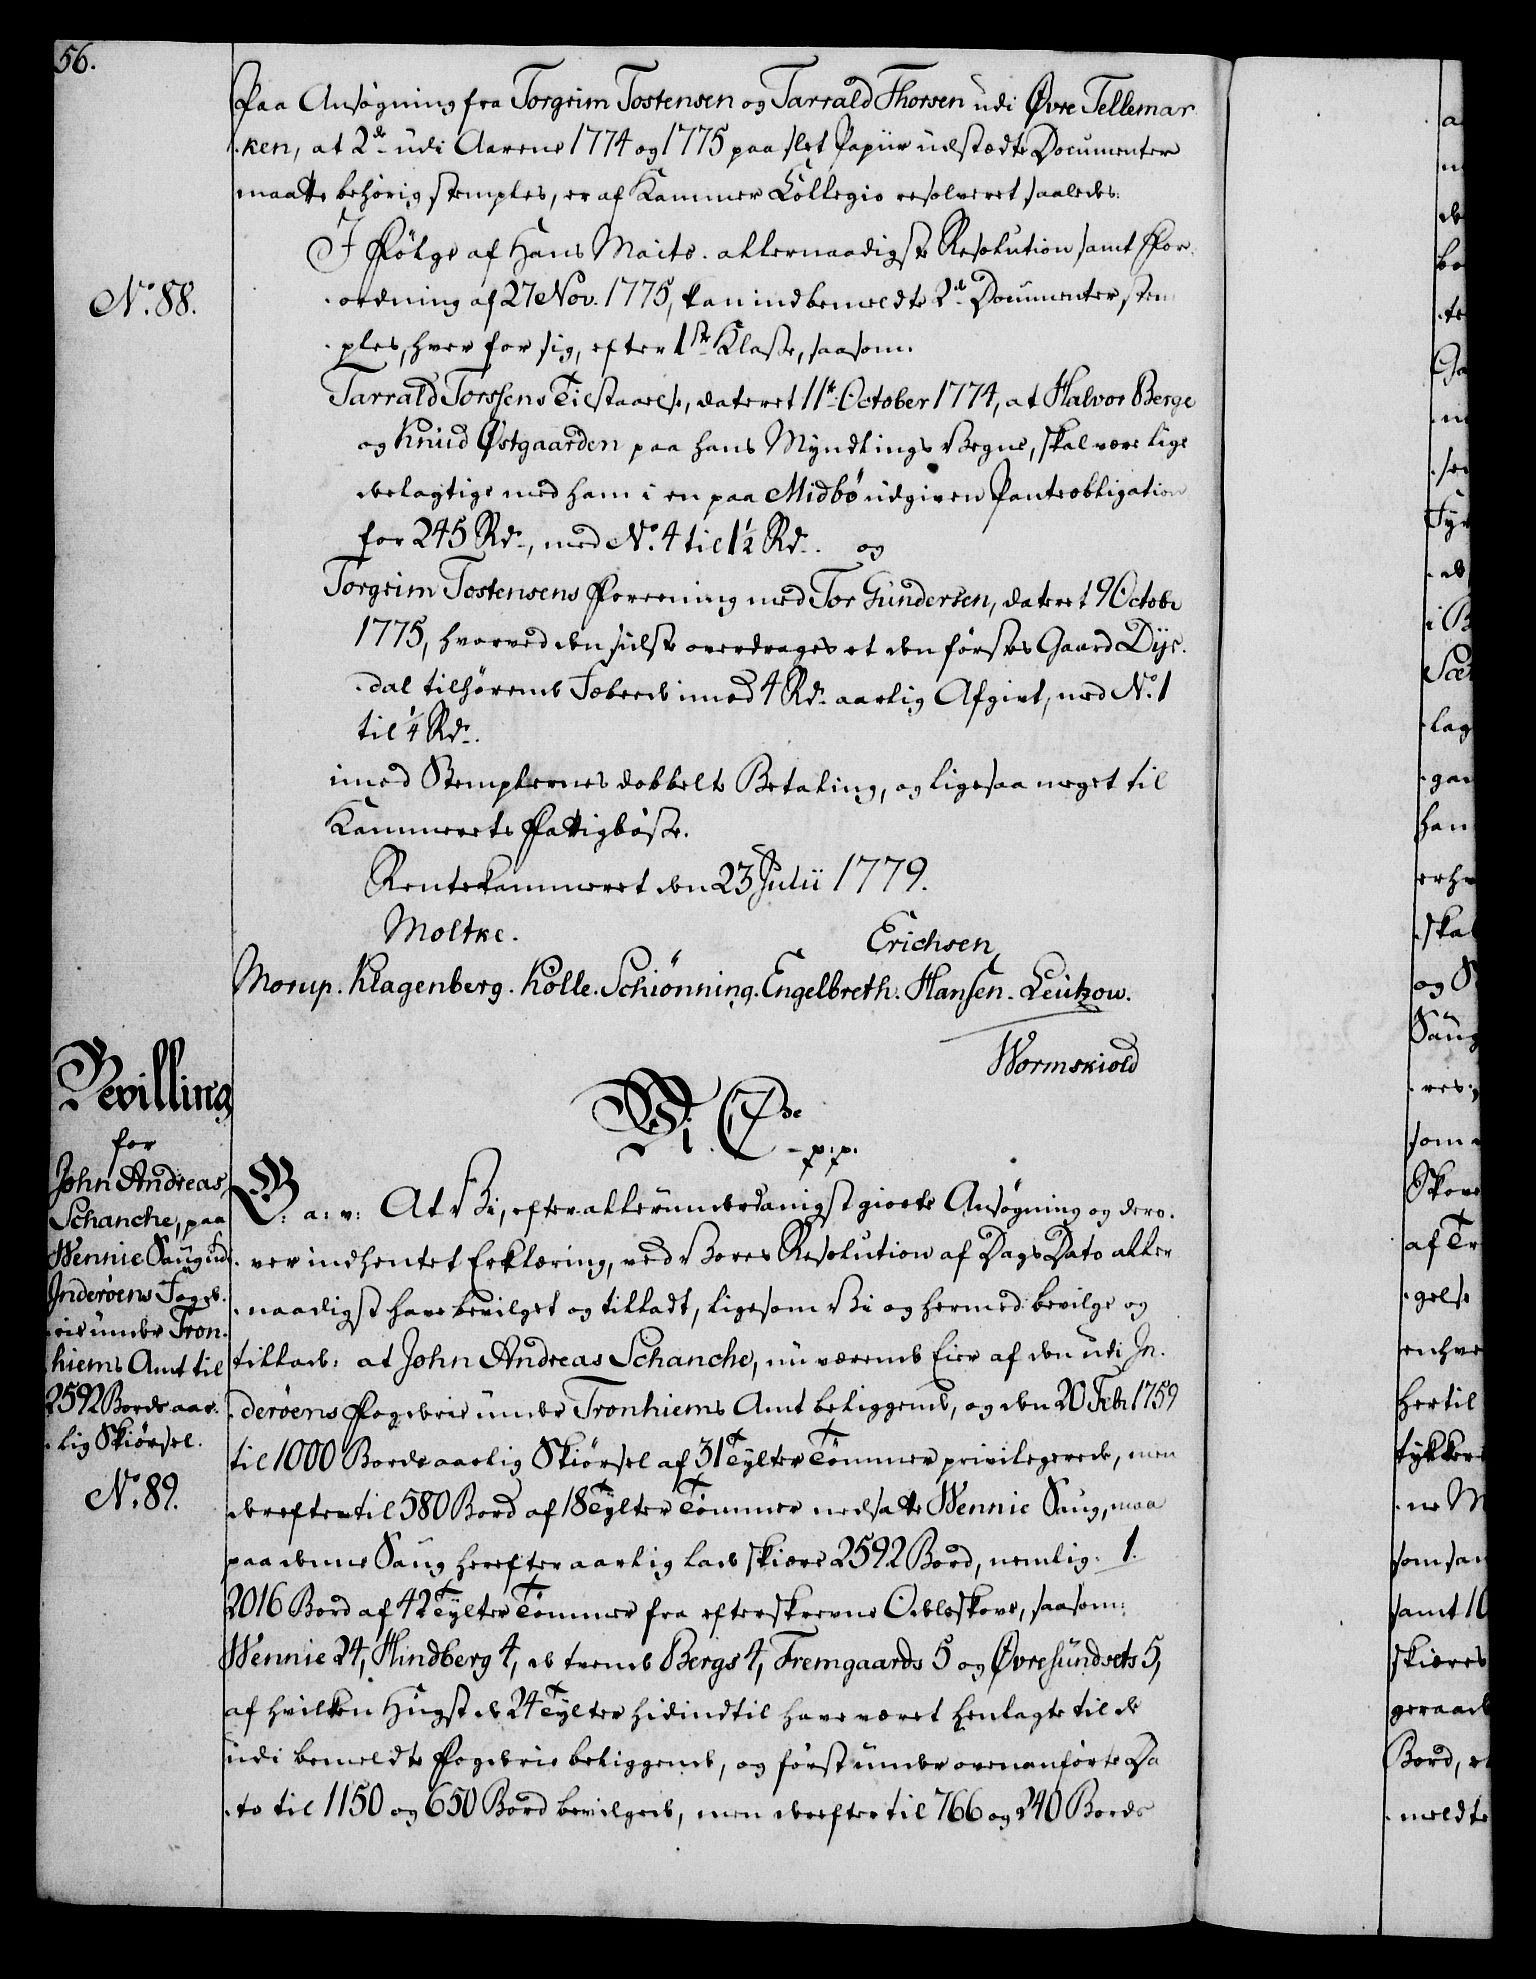 56.
Paa Ansøgning fra Torgrim Tostensen og Tarrald Thorsen udi Øvre Tellemar
ken, at 2de udi Aarene 1774 og 1775 paa slet Papiir udstædte Documenter
maatte behørig stemples, er af Kammer Collegio resolveret saaledes:
No. 88.
I Følge af Hans Maits. allernaadigste Resolution samt For
ordning af 27 Nov. 1775, kan indbemeldte 2de Documenter stem
ples, hver for sig, efter 1ste Klasse, saasom:
Tarrald Torssens Tilstaaelse, dateret 11te October 1774, at Halvor Berge
og Knud Østgaarden paa hans Myndlings Vegne, skal være lige
delagtige med ham i en paa Midbø udgiven Panteobligation
for 245 Rd., med No. 4 til 1½ Rd. og
Torgrim Tostensens Foreening med Tor Gundersen, dateret 9 Octobr
1775, hvorved den sidste overdrages et den førstes Gaard Dys
dal tilhørende imod 4 Rd. aarlig Afgivt, med No. 1
til ¼ Rd.
imod Stemplernes dobbelte Betaling, og ligesaa meget til
Kammerets Fattigbøsse.
Rentekammeret den 23 Julii 1779.
Moltke. Erichsen
Morup. Klagenberg. Kølle. Schiønning. Engelbreth. Hansen. Leutzow.
Wormskiold
Bevilling
for
John Andreas
Schanche, paa
Wennie Saug udi
Inderøens Foged
erie under Tron
hiems Amt til
2592 Bords aar
lig Skiørsel.
No. 89.
Vi. C. 7de p. p.
G: a: v: At Vi, efter allerunderdanigst giorte Ansøgning og dero
ver indhentet Erklæring, ved Vores Resolution af Dags Dato aller
naadigst have bevilget og tilladt, ligesom Vi og hermed bevilge og
tillade: at John Andreas Schanche, nu værende Eier af den udi In
derøens Fogderie under Tronhiems Amt beliggende, og den 20 Febr 1759
til 1000 Bords aarlig Skiørsel af 31 Tylter Tømmer privilegerede, men
derefter til 580 Bord af 18 Tylter Tømmer nedsatte Wennie Saug, maa
paa denne Saug herefter aarlig lade skiære 2592 Bord, nemlig: 1.
2016 Bord af 42 Tylter Tømmer fra efterskrevne Odelsskove, saasom:
Wennie 24, Hindberg 4, de tvende Bergs 4, Fremgaards 5 og Øvresundsets 5,
af hvilken Hugst de 24 Tylter hidindtil have været henlagte til de
udi bemeldte Fogderie beliggende, og først under ovenanførte Da
to til 1150 og 650 Bord bevilgede, men derefter til 766 og 240 Bords